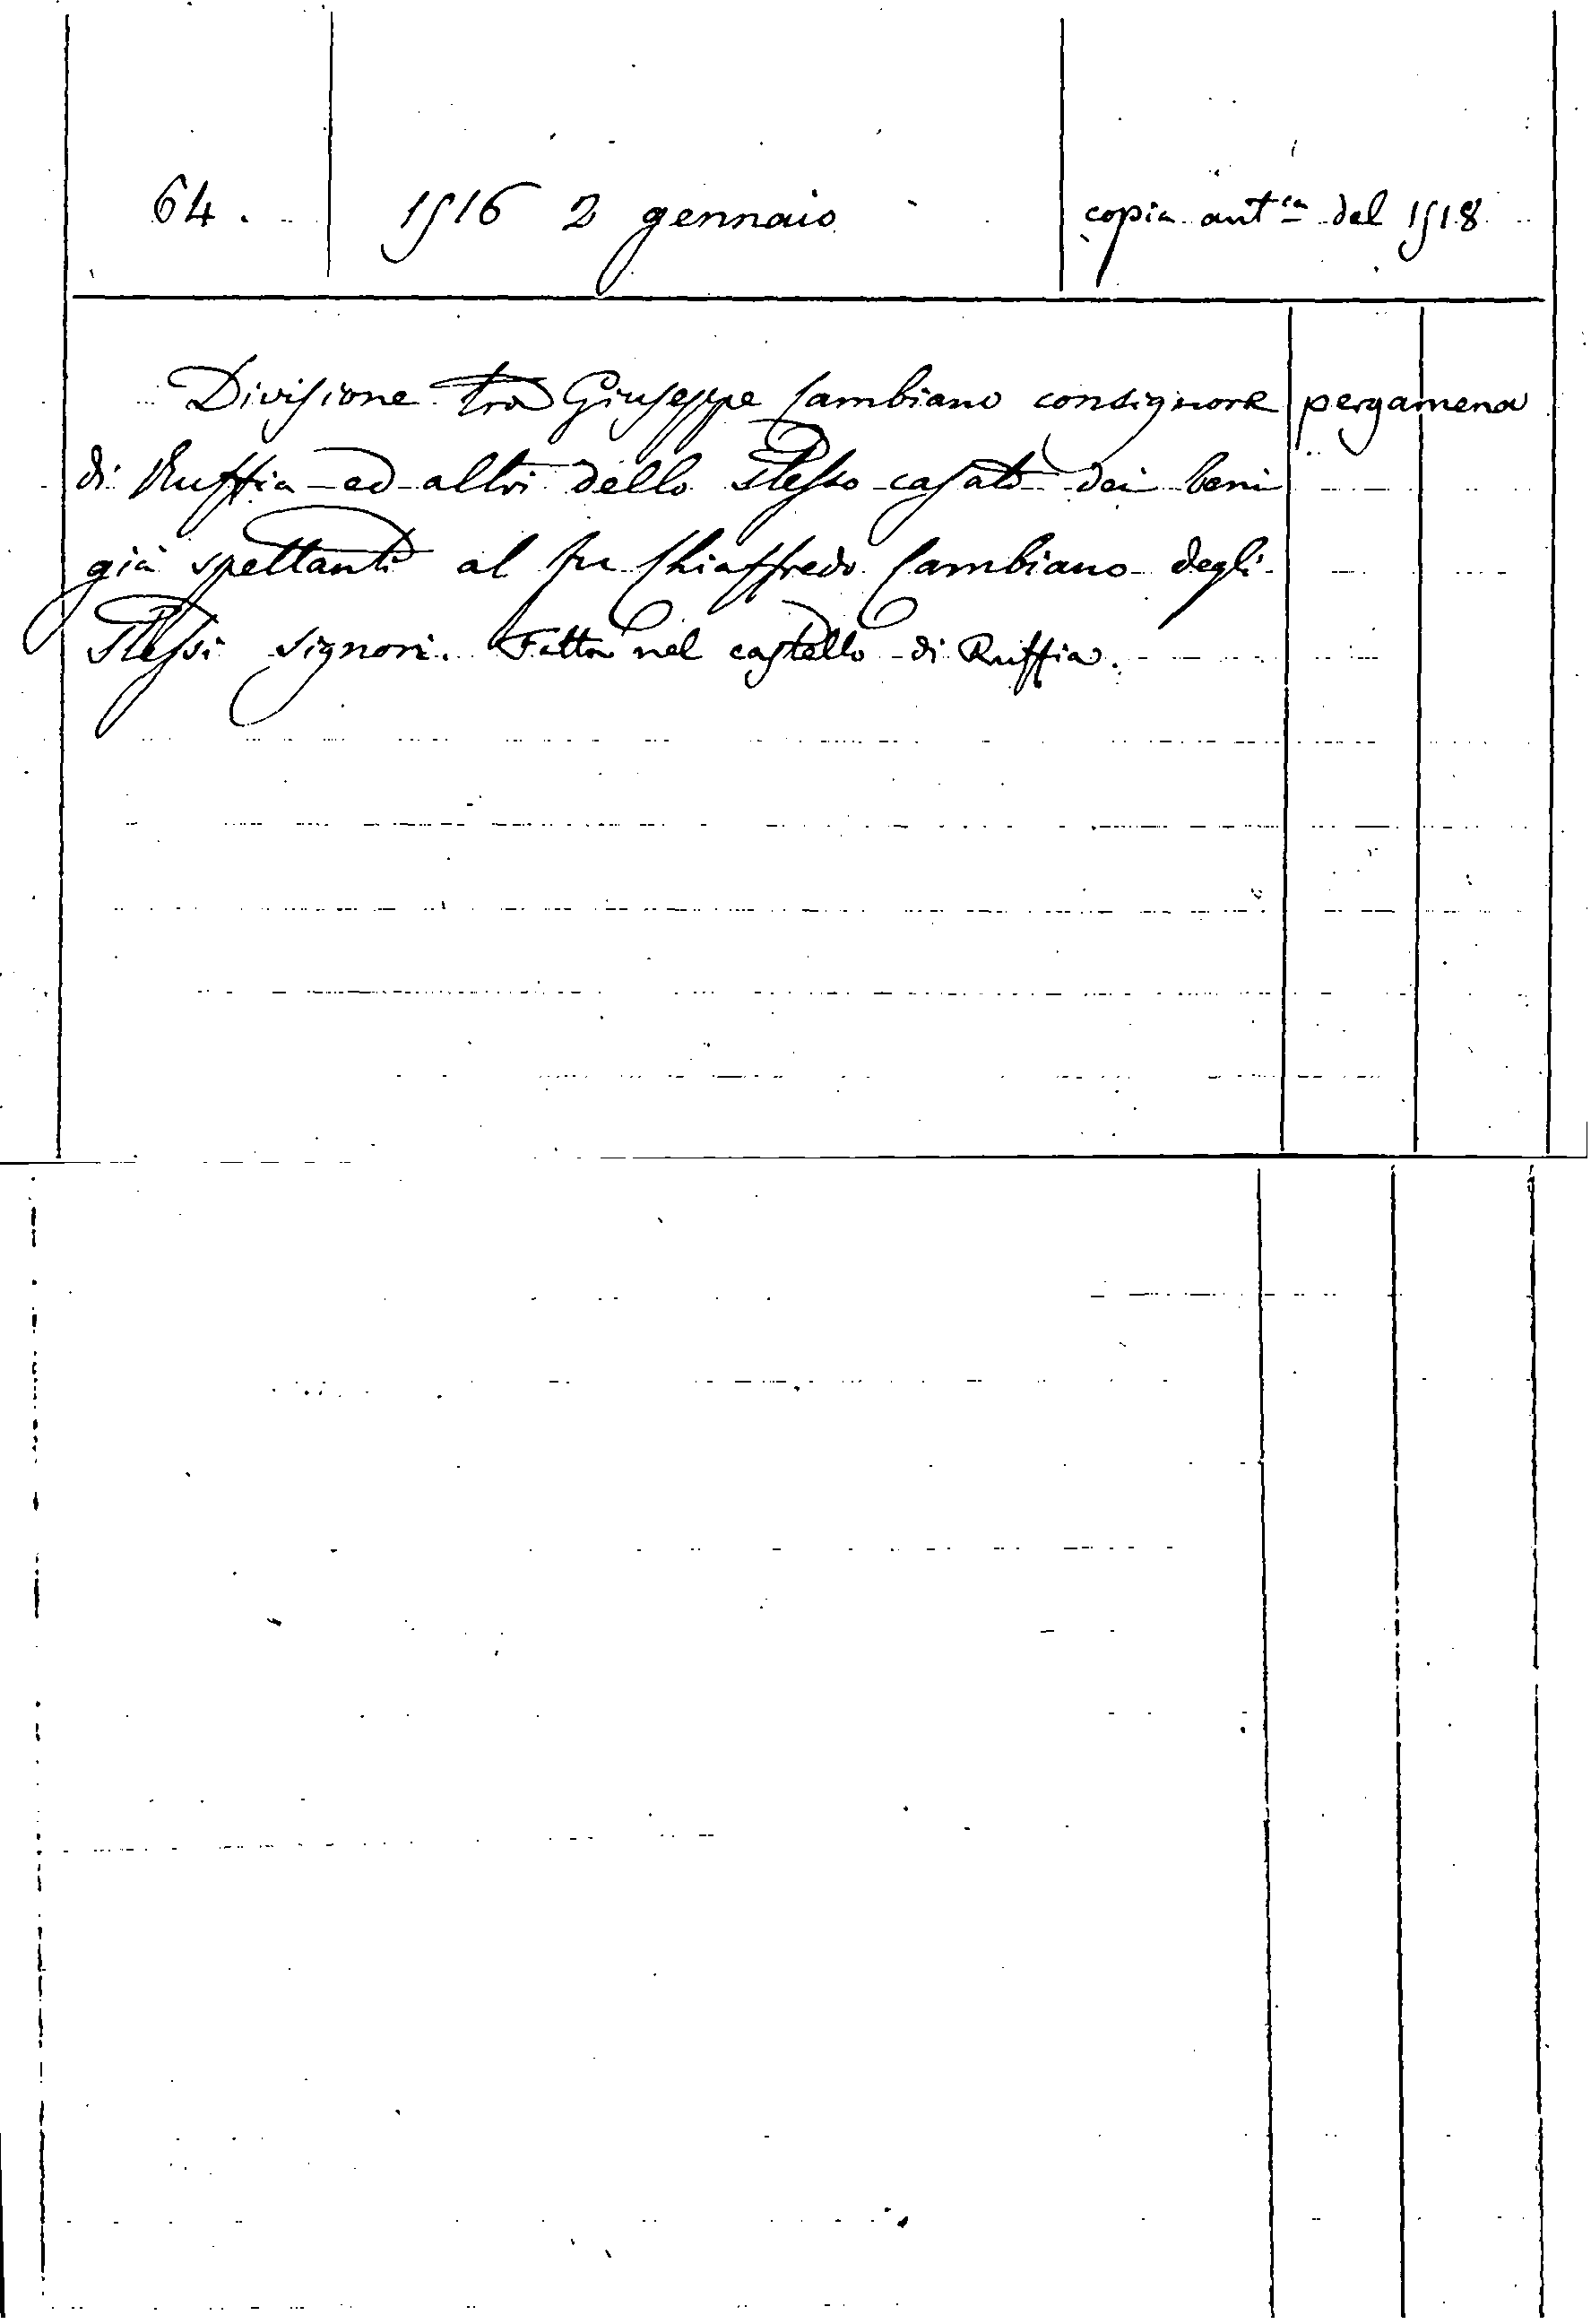 64. 1516 2 gennaio copia aut.ca del 1518
Divisione tra Giuseppe Cambiano consignore pergamena
di Ruffia ed altri dello stesso casato dei beni
già spettanti al fu Chiaffredo Cambiano degli
stessi signori. Fatta nel castello di Ruffia.